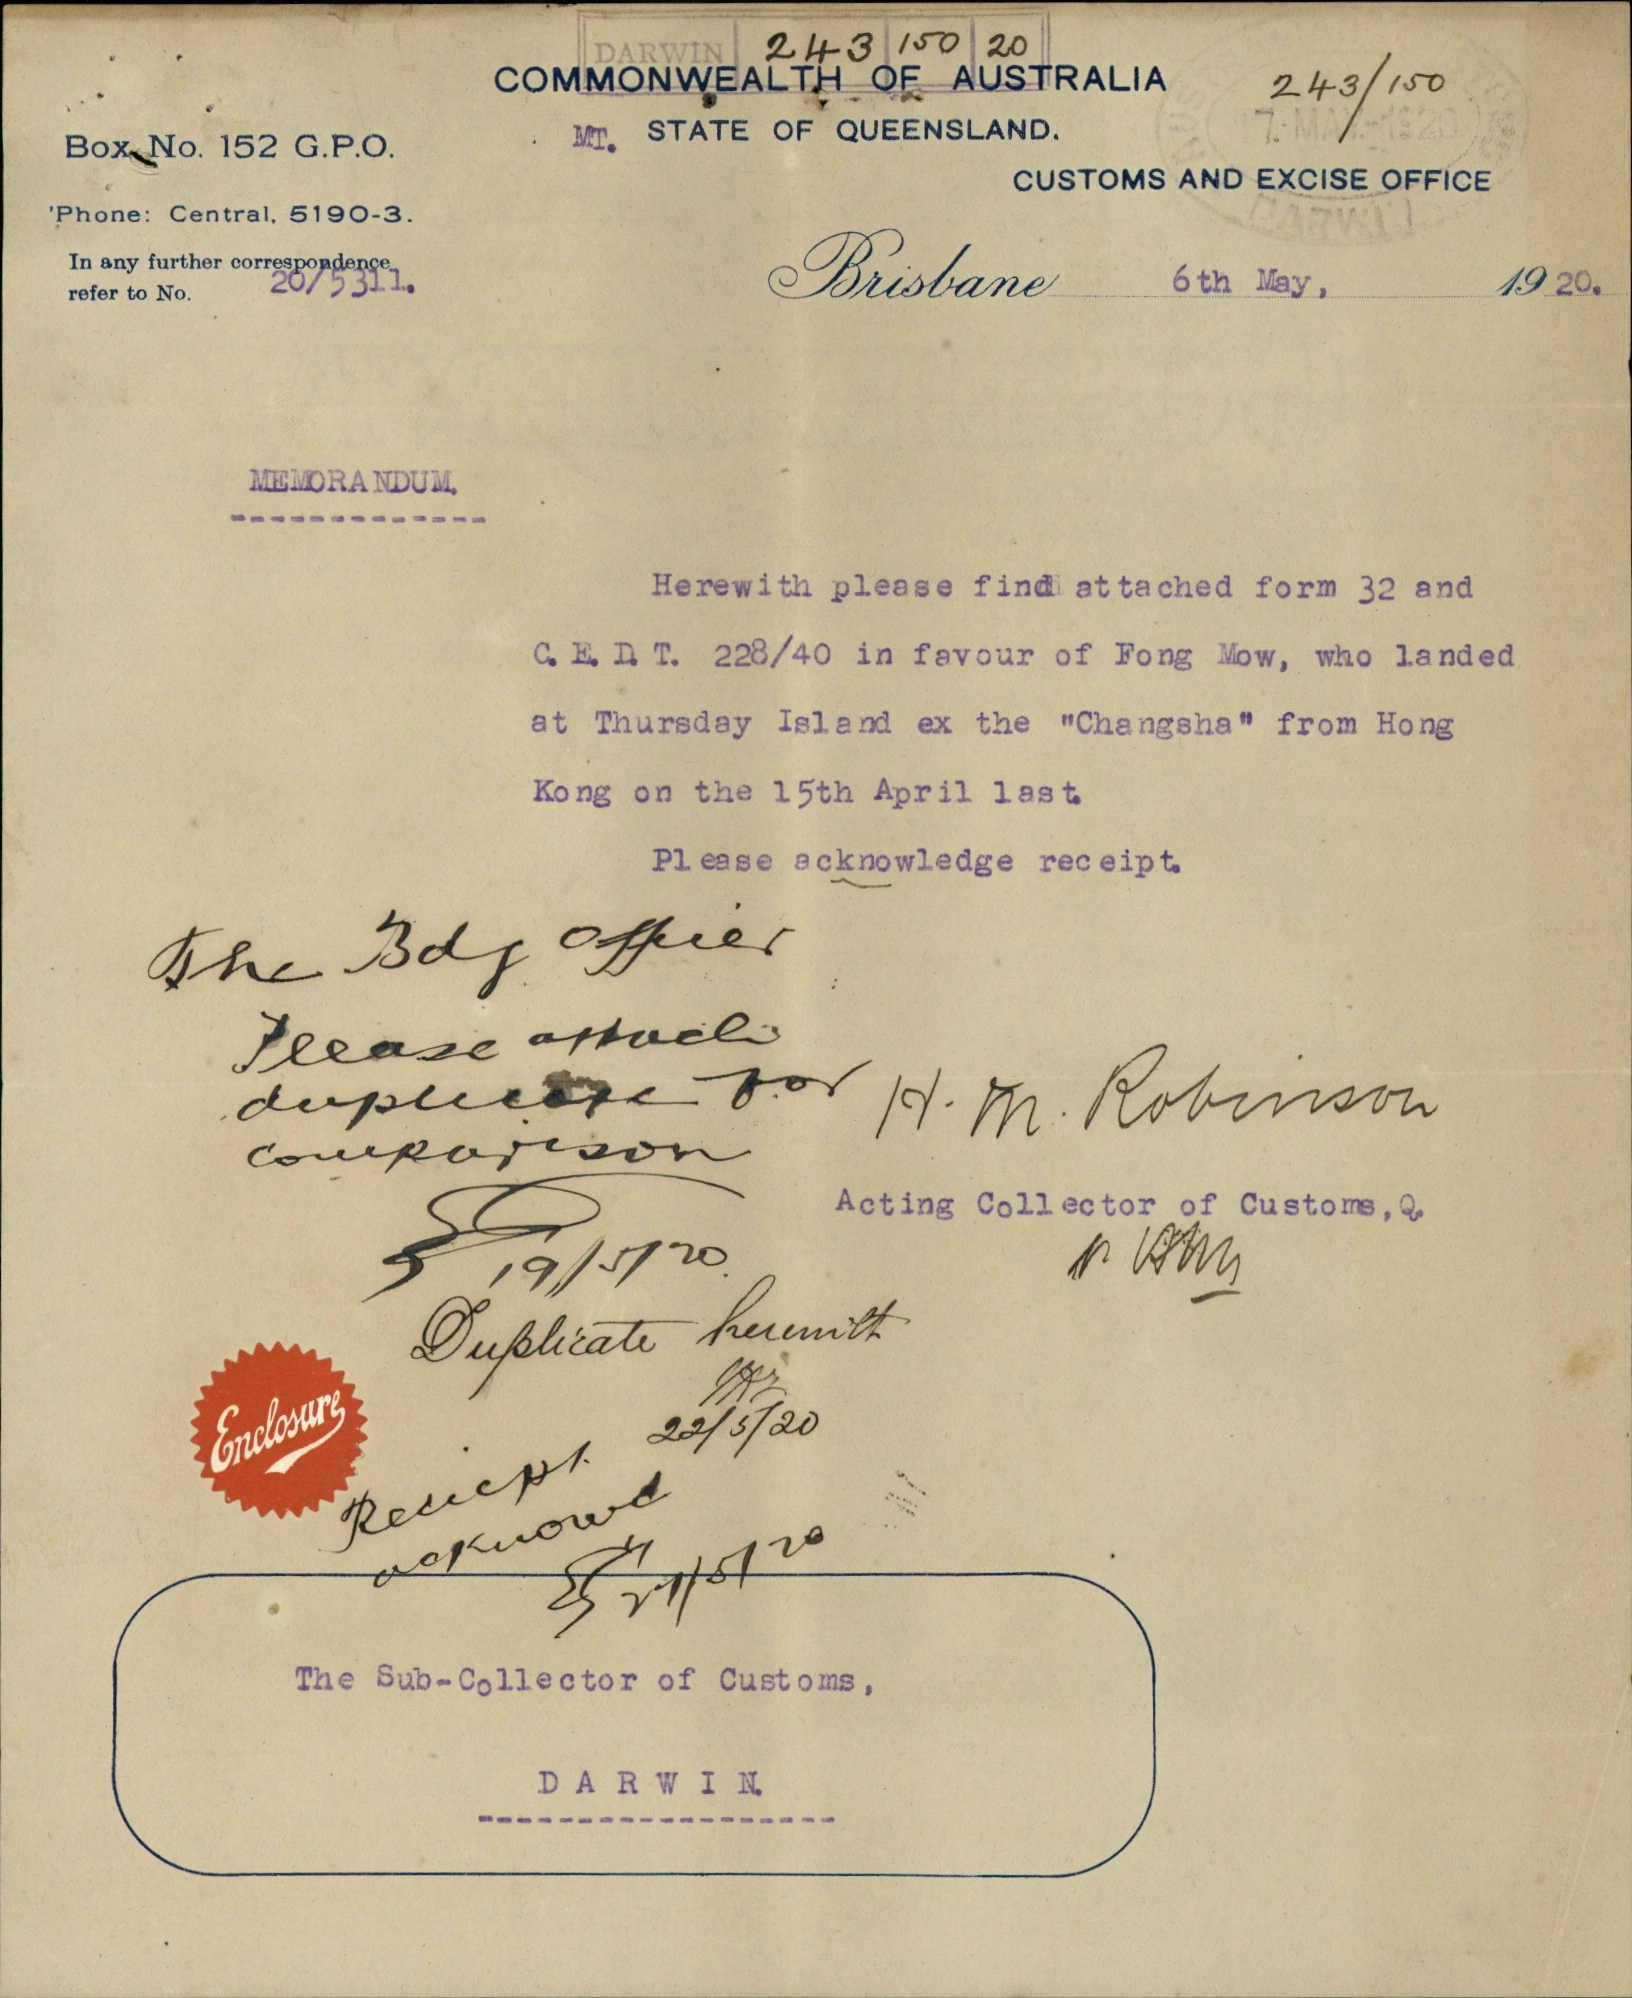 DARWIN 243 150 20
COMMONWEALTH OF AUSTRALIA
243/150
MT. STATE OF QUEENSLAND.
Box No. 152 G.P.O.
CUSTOMS AND EXCISE OFFICE
'Phone: Central, 5190-3.
DARWIN
In any further correspondence
refer to No. 20/5311.
Brisbane 6th May, 1920.
MEMORANDUM.
Herewith please find attached form 32 and
C.E.D.T. 228/40 in favour of Fong Mow, who landed
at Thursday Island ex the "Changsha" from Hong
Kong on the 15th April last.
Please acknowledge receipt.
The Bdg Officer
Please attach
duplicate for
comparison
19/5/20
H. M. Robinson
Acting Collector of Customs, Q.
Duplicate herewith
22/5/20
Enclosure
Receipt
acknowd
27/5/20
The Sub-Collector of Customs,
DARWIN.